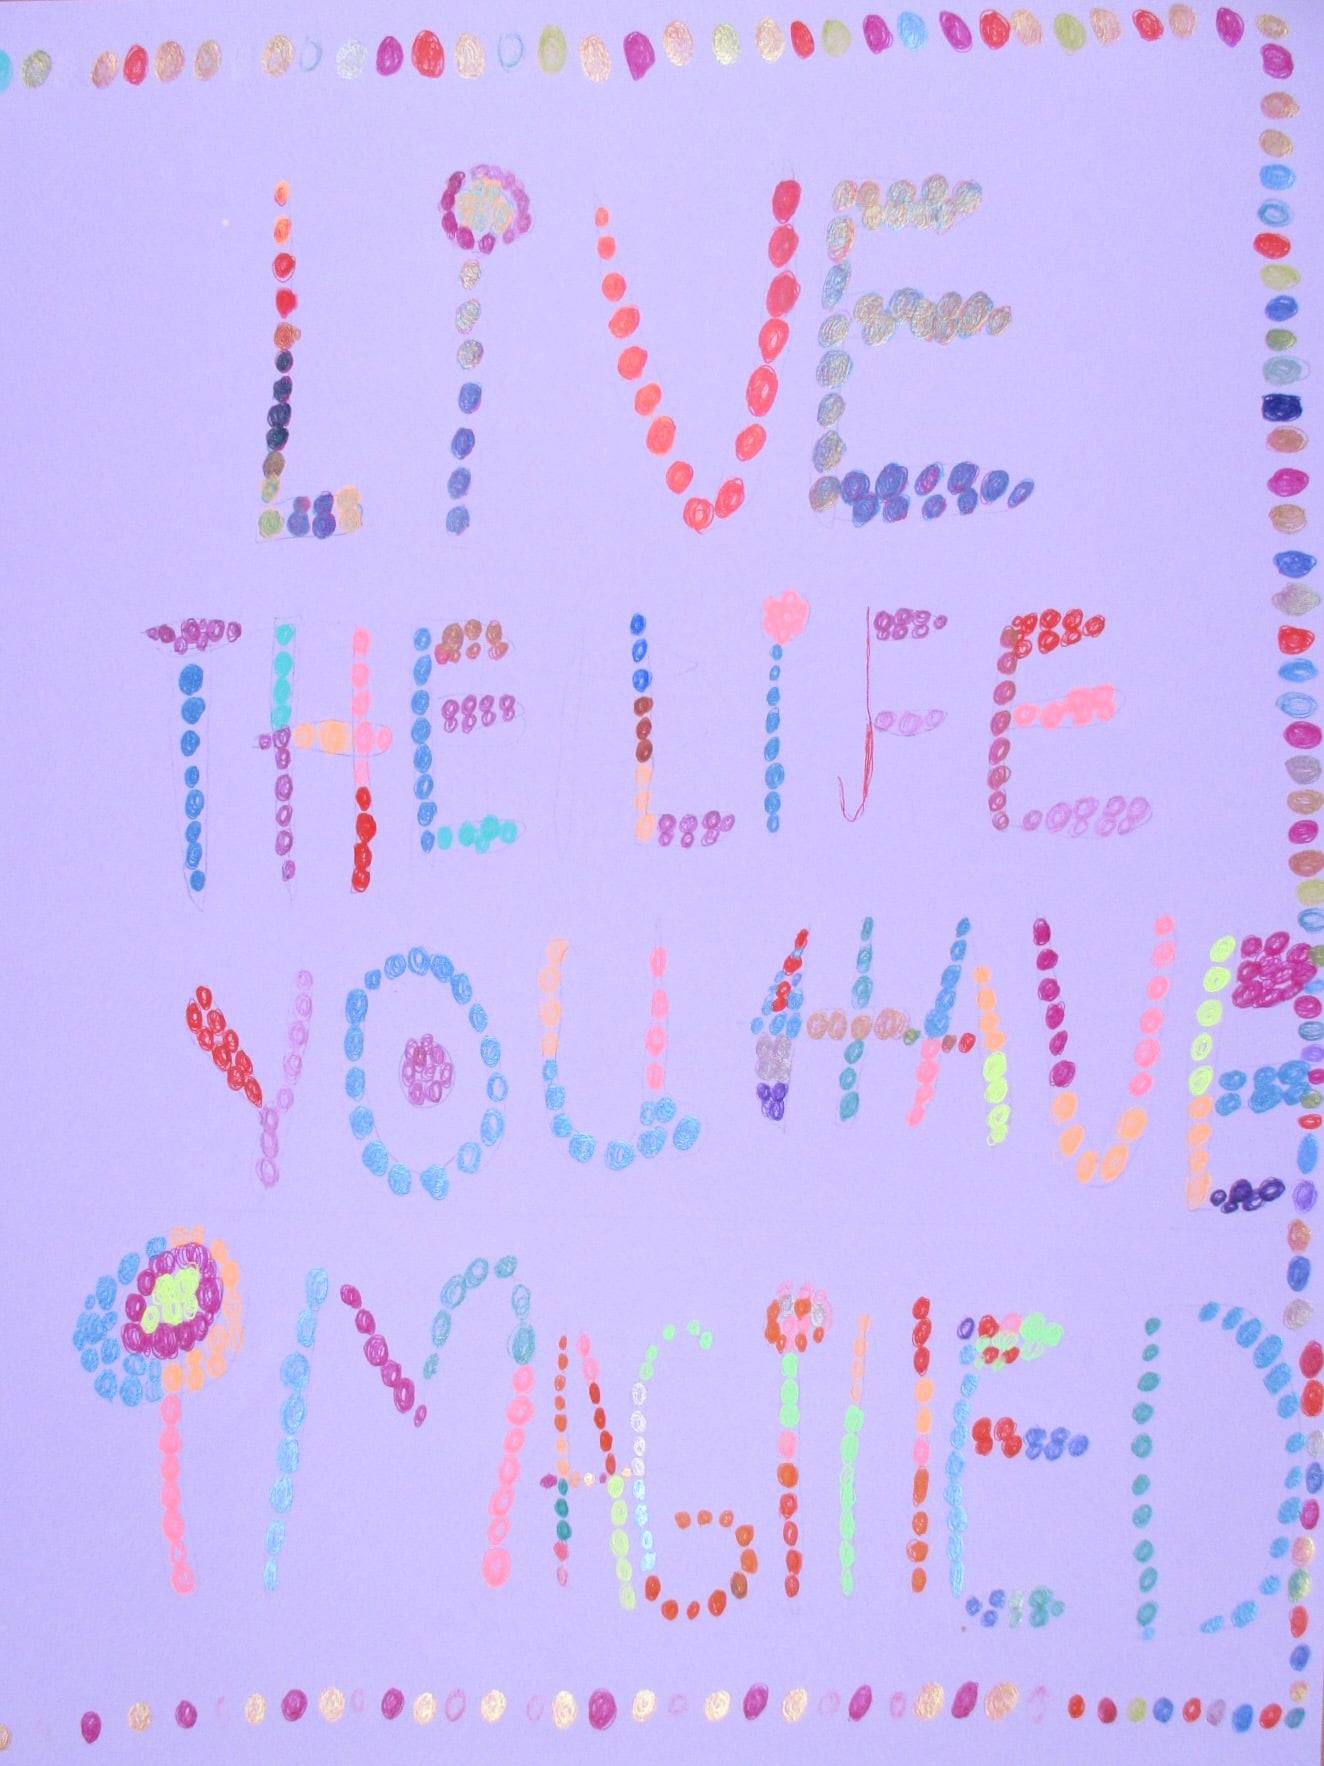 LIVE
THE LIFE
YOU HAVE
IMAGINED